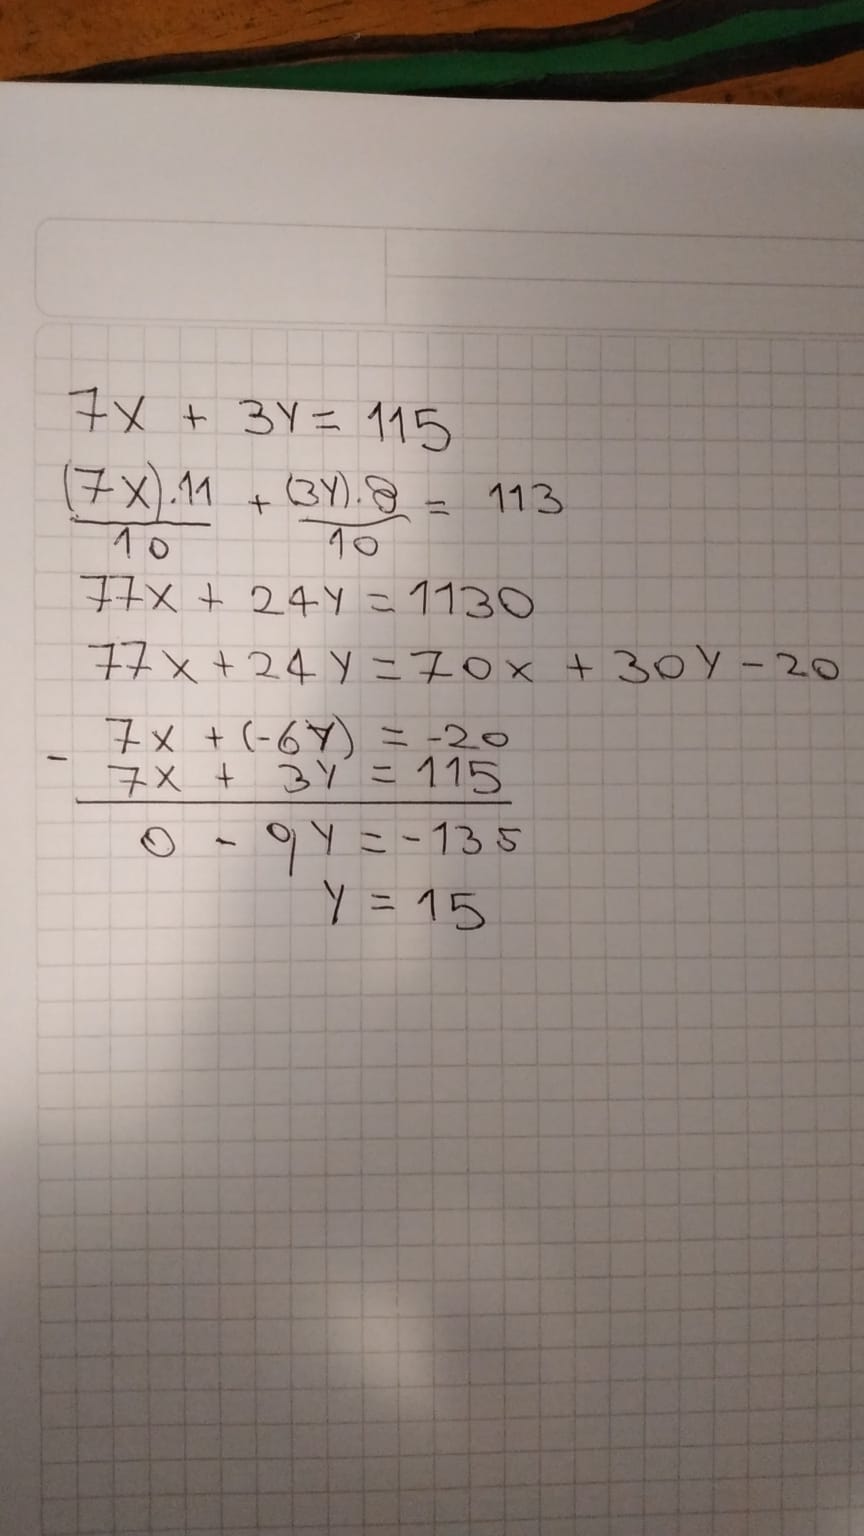 7x + 3y = 115
(7x).11/10 + (3y).8/10 = 113
77x + 24y = 1130
77x + 24y = 70x + 30y - 20
7x + (-6y) = -20
- 7x + 3y = 115
0 - 9y = -135
y = 15